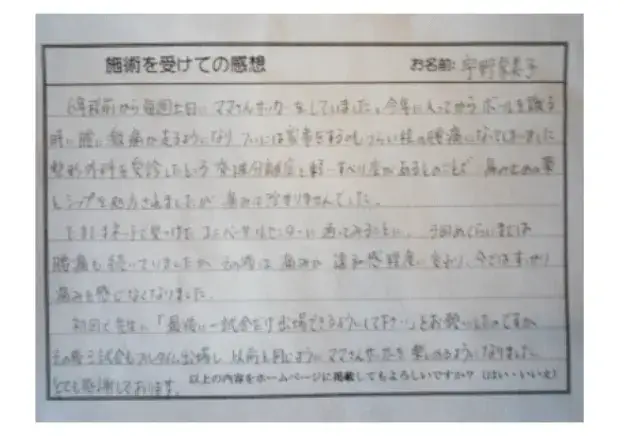 施術を受けての感想 お名前:宇野
6年程前から毎週土日に ママさんサッカーをしていました。今年に入ってからボールを蹴る
時に腰に激痛が走るようになり ついには家事をするのもつらい程の腰痛になってしまいました
整形外科を受診したところ 脊椎分離症と軽いすべり症があるとのことで 痛み止めの薬
とシップを処方されましたが 痛みは治まりませんでした。
たまたまネットで見つけた センターに通ってみることに。 3回めくらいまでは
腰痛も続いていましたが その後は痛みが違和感程度に変わり、今ではすっかり
痛みも感じなくなりました。
初回で先生に「最後に一試合だけ出場できるようにして下さい」とお願いしたのですが
その後三試合もフルタイム出場し 以前と同じようにママさんサッカーを楽しめるようになりました
とても感謝しております。
以上の内容をホームページに掲載してもよろしいですか?(はい・いいえ)